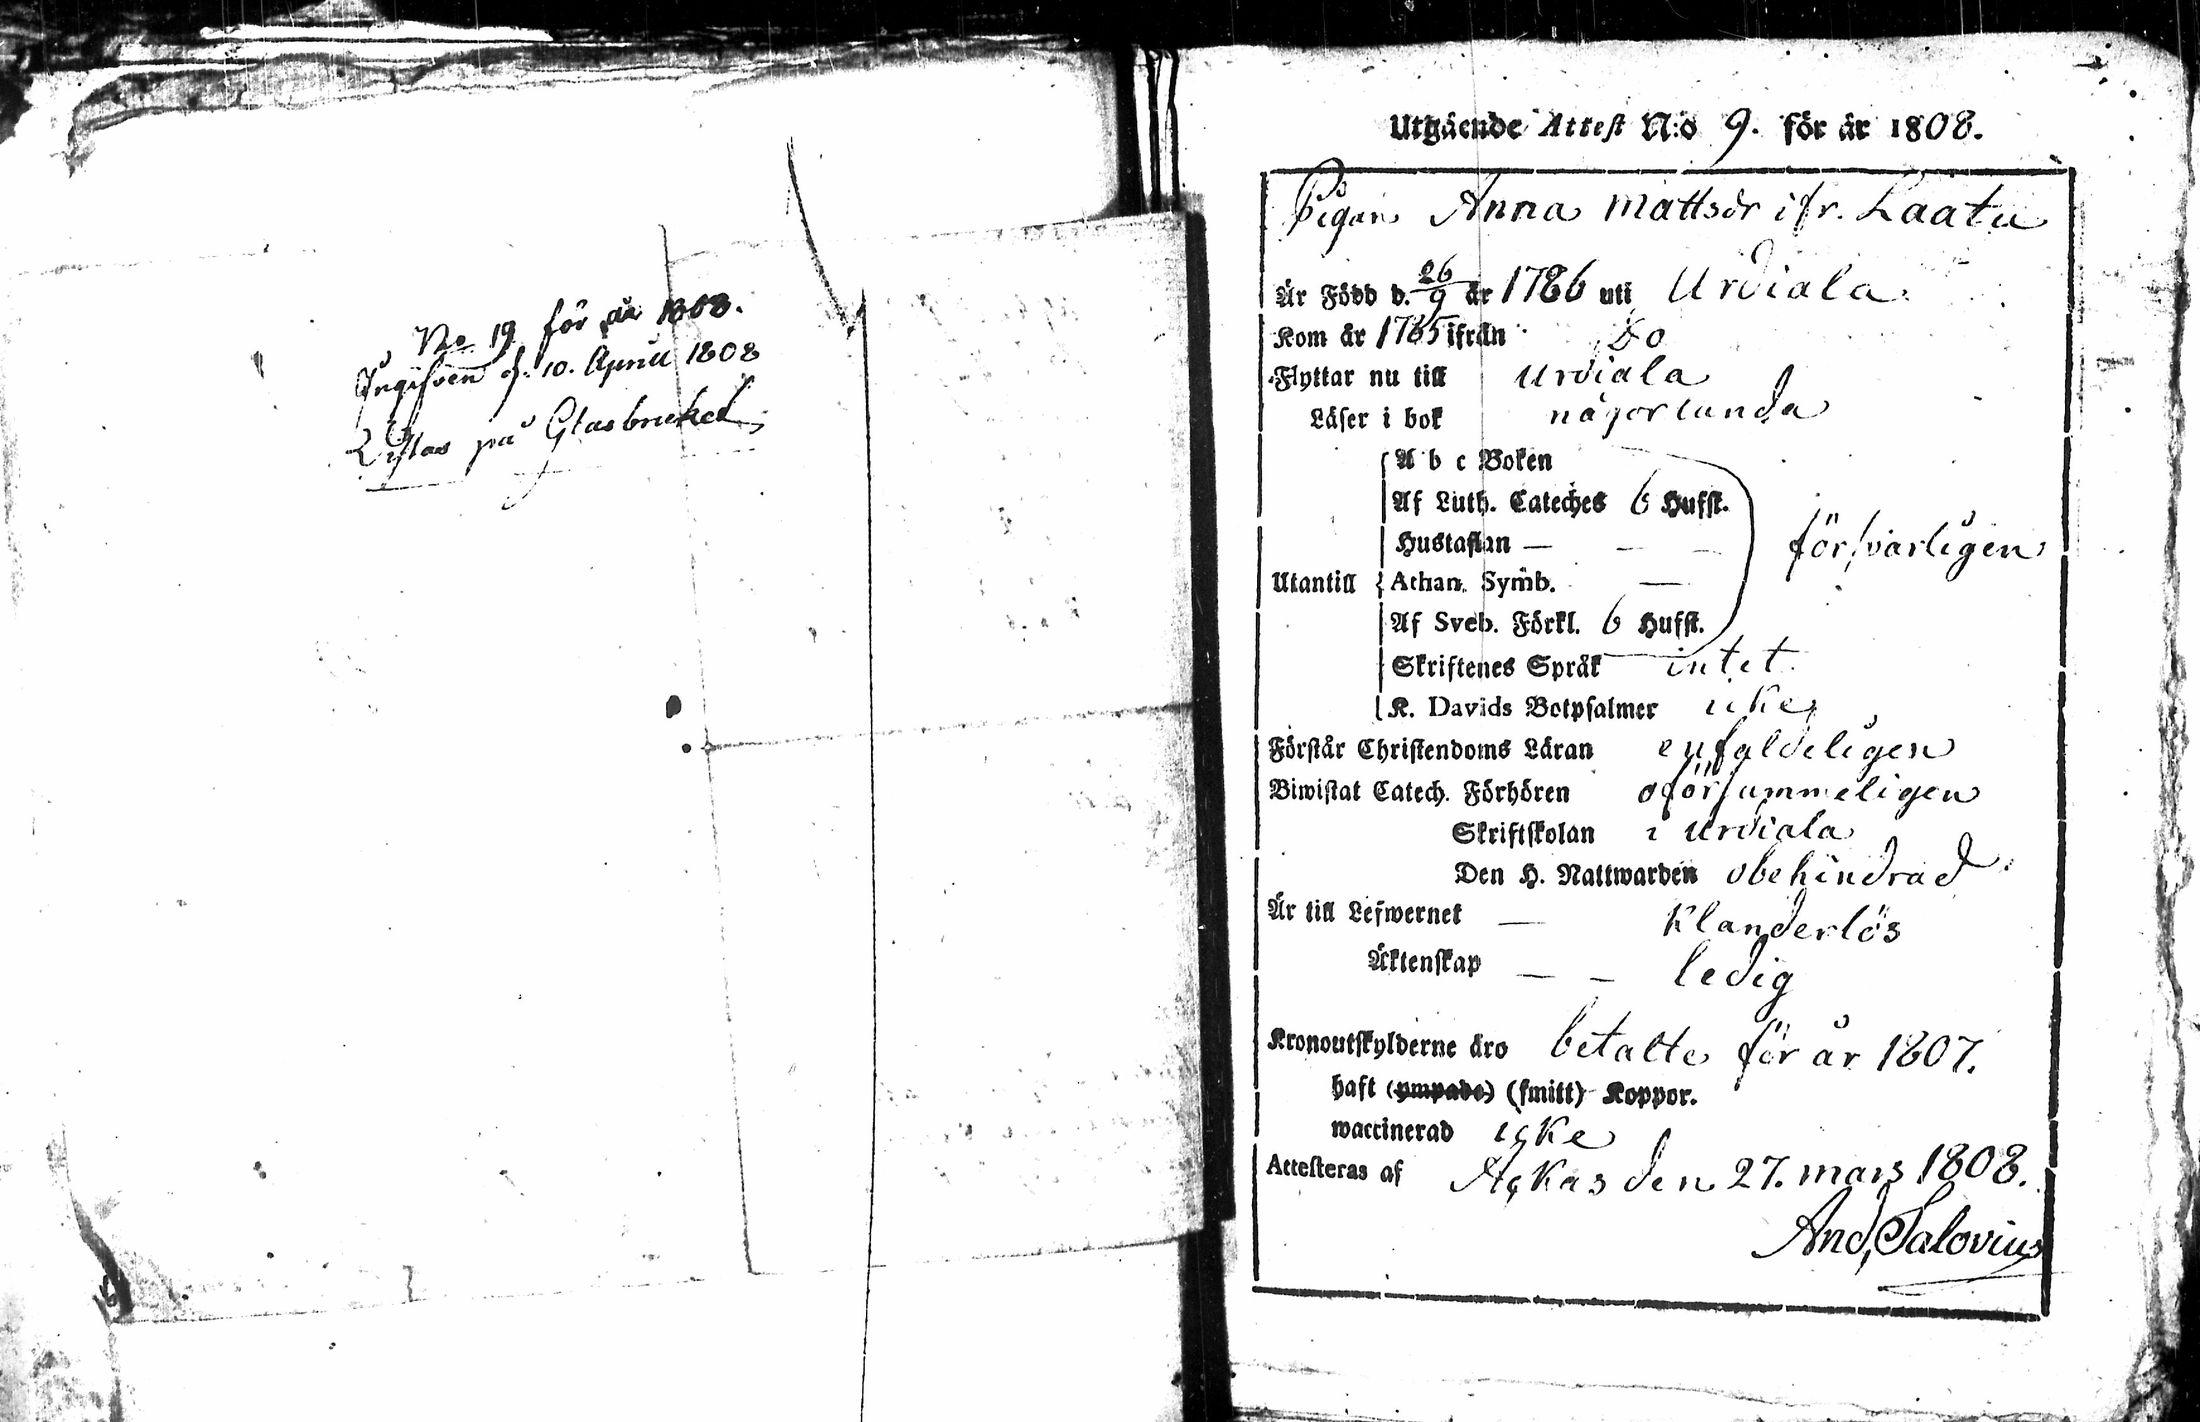 No 19 för år 1808.
Ingifven d. 10. Aprill 1808
på Glasbruket
Utgående Attest N:o 9. för år 1808.
Pigan Anna Mattsdr ifr. Laatu
Är Född d. 26/9 år 1786 uti Urdiala
Kom år 1785 ifrån do
Flyttar nu till Urdiala
Läser i bok någorlunda
A b c Boken
Af Luth. Cateches 6 Hufst.
Hustaflan — — —
försvarligen
Utantill
Athan. Symb. —
Af Sveb. Förkl. 6 Hufst.
Skriftenes Språk intet
K. Davids Botpsalmer icke
Förstår Christendoms Läran enfaldeligen
Biwistat Catech. Förhören oförsummeligen
Skriftskolan i Urdiala
Den H. Nattwarden obehindrad
Är till Lefwernet — Klanderlös
Äktenskap — — ledig
Kronoutskylderne äro betalte för år 1807.
haft (ympade) (smitt) Koppor.
waccinerad icke
Attesteras af Ackas den 27. mars 1808.
And, Salovius